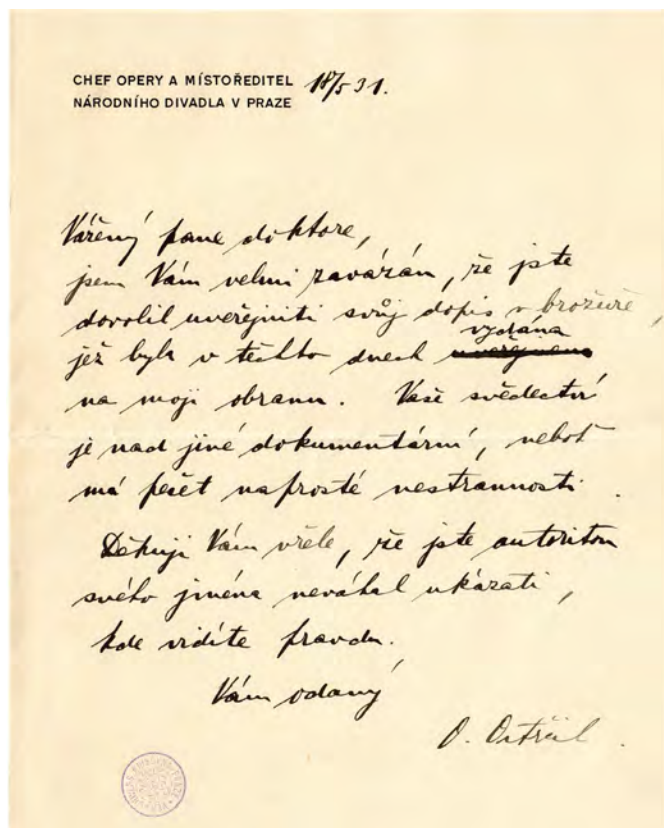 CHEF OPERY A MÍSTOŘEDITEL 18/5 31.
NÁRODNÍHO DIVADLA V PRAZE
Vážený pane doktore,
jsem Vám velmi zavázán, že jste
dovolil uveřejniti svůj dopis v brožuře,
jež byla v těchto dnech vydána
na moji obranu. Vaše svědectví
je nad jiné dokumentární, neboť
má pečeť naprosté nestrannosti.
Děkuji Vám vřele, že jste autoritou
svého jména neváhal ukázati,
kde vidíte pravdu.
Vám odaný
O. Ostrčil.